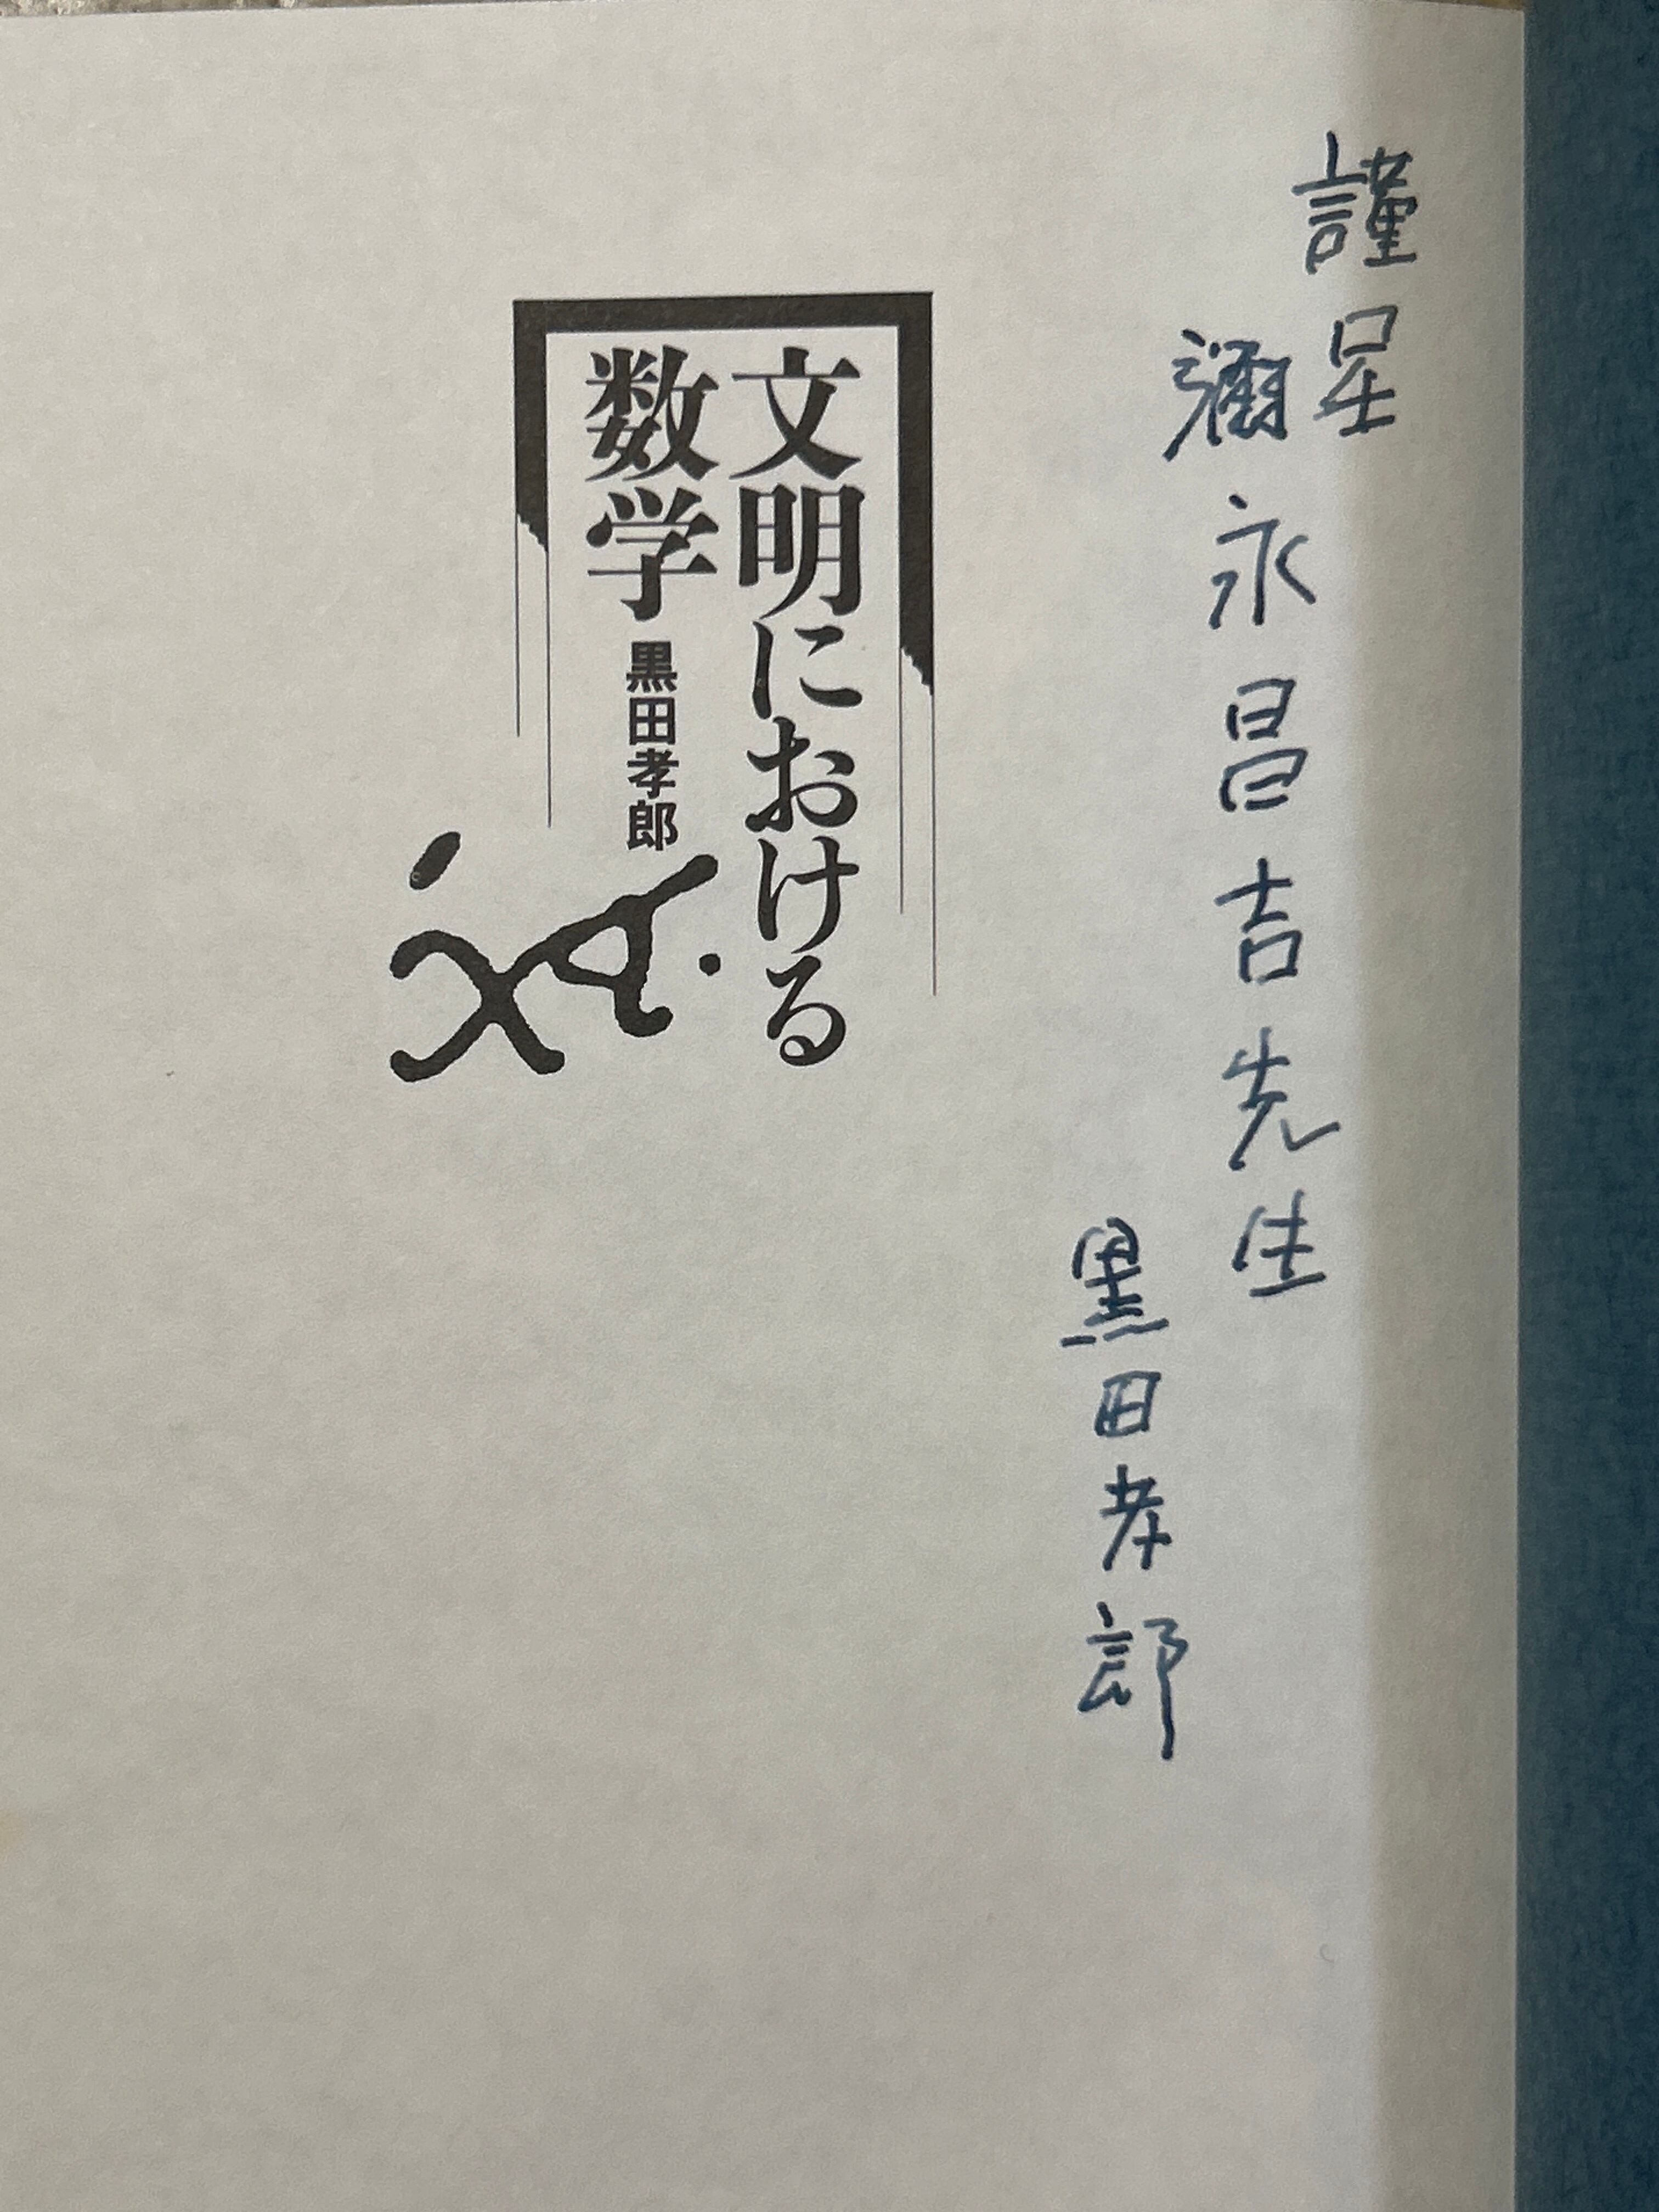 謹呈
彌永昌吉先生
黒田孝郎
文明における
数学
黒田孝郎